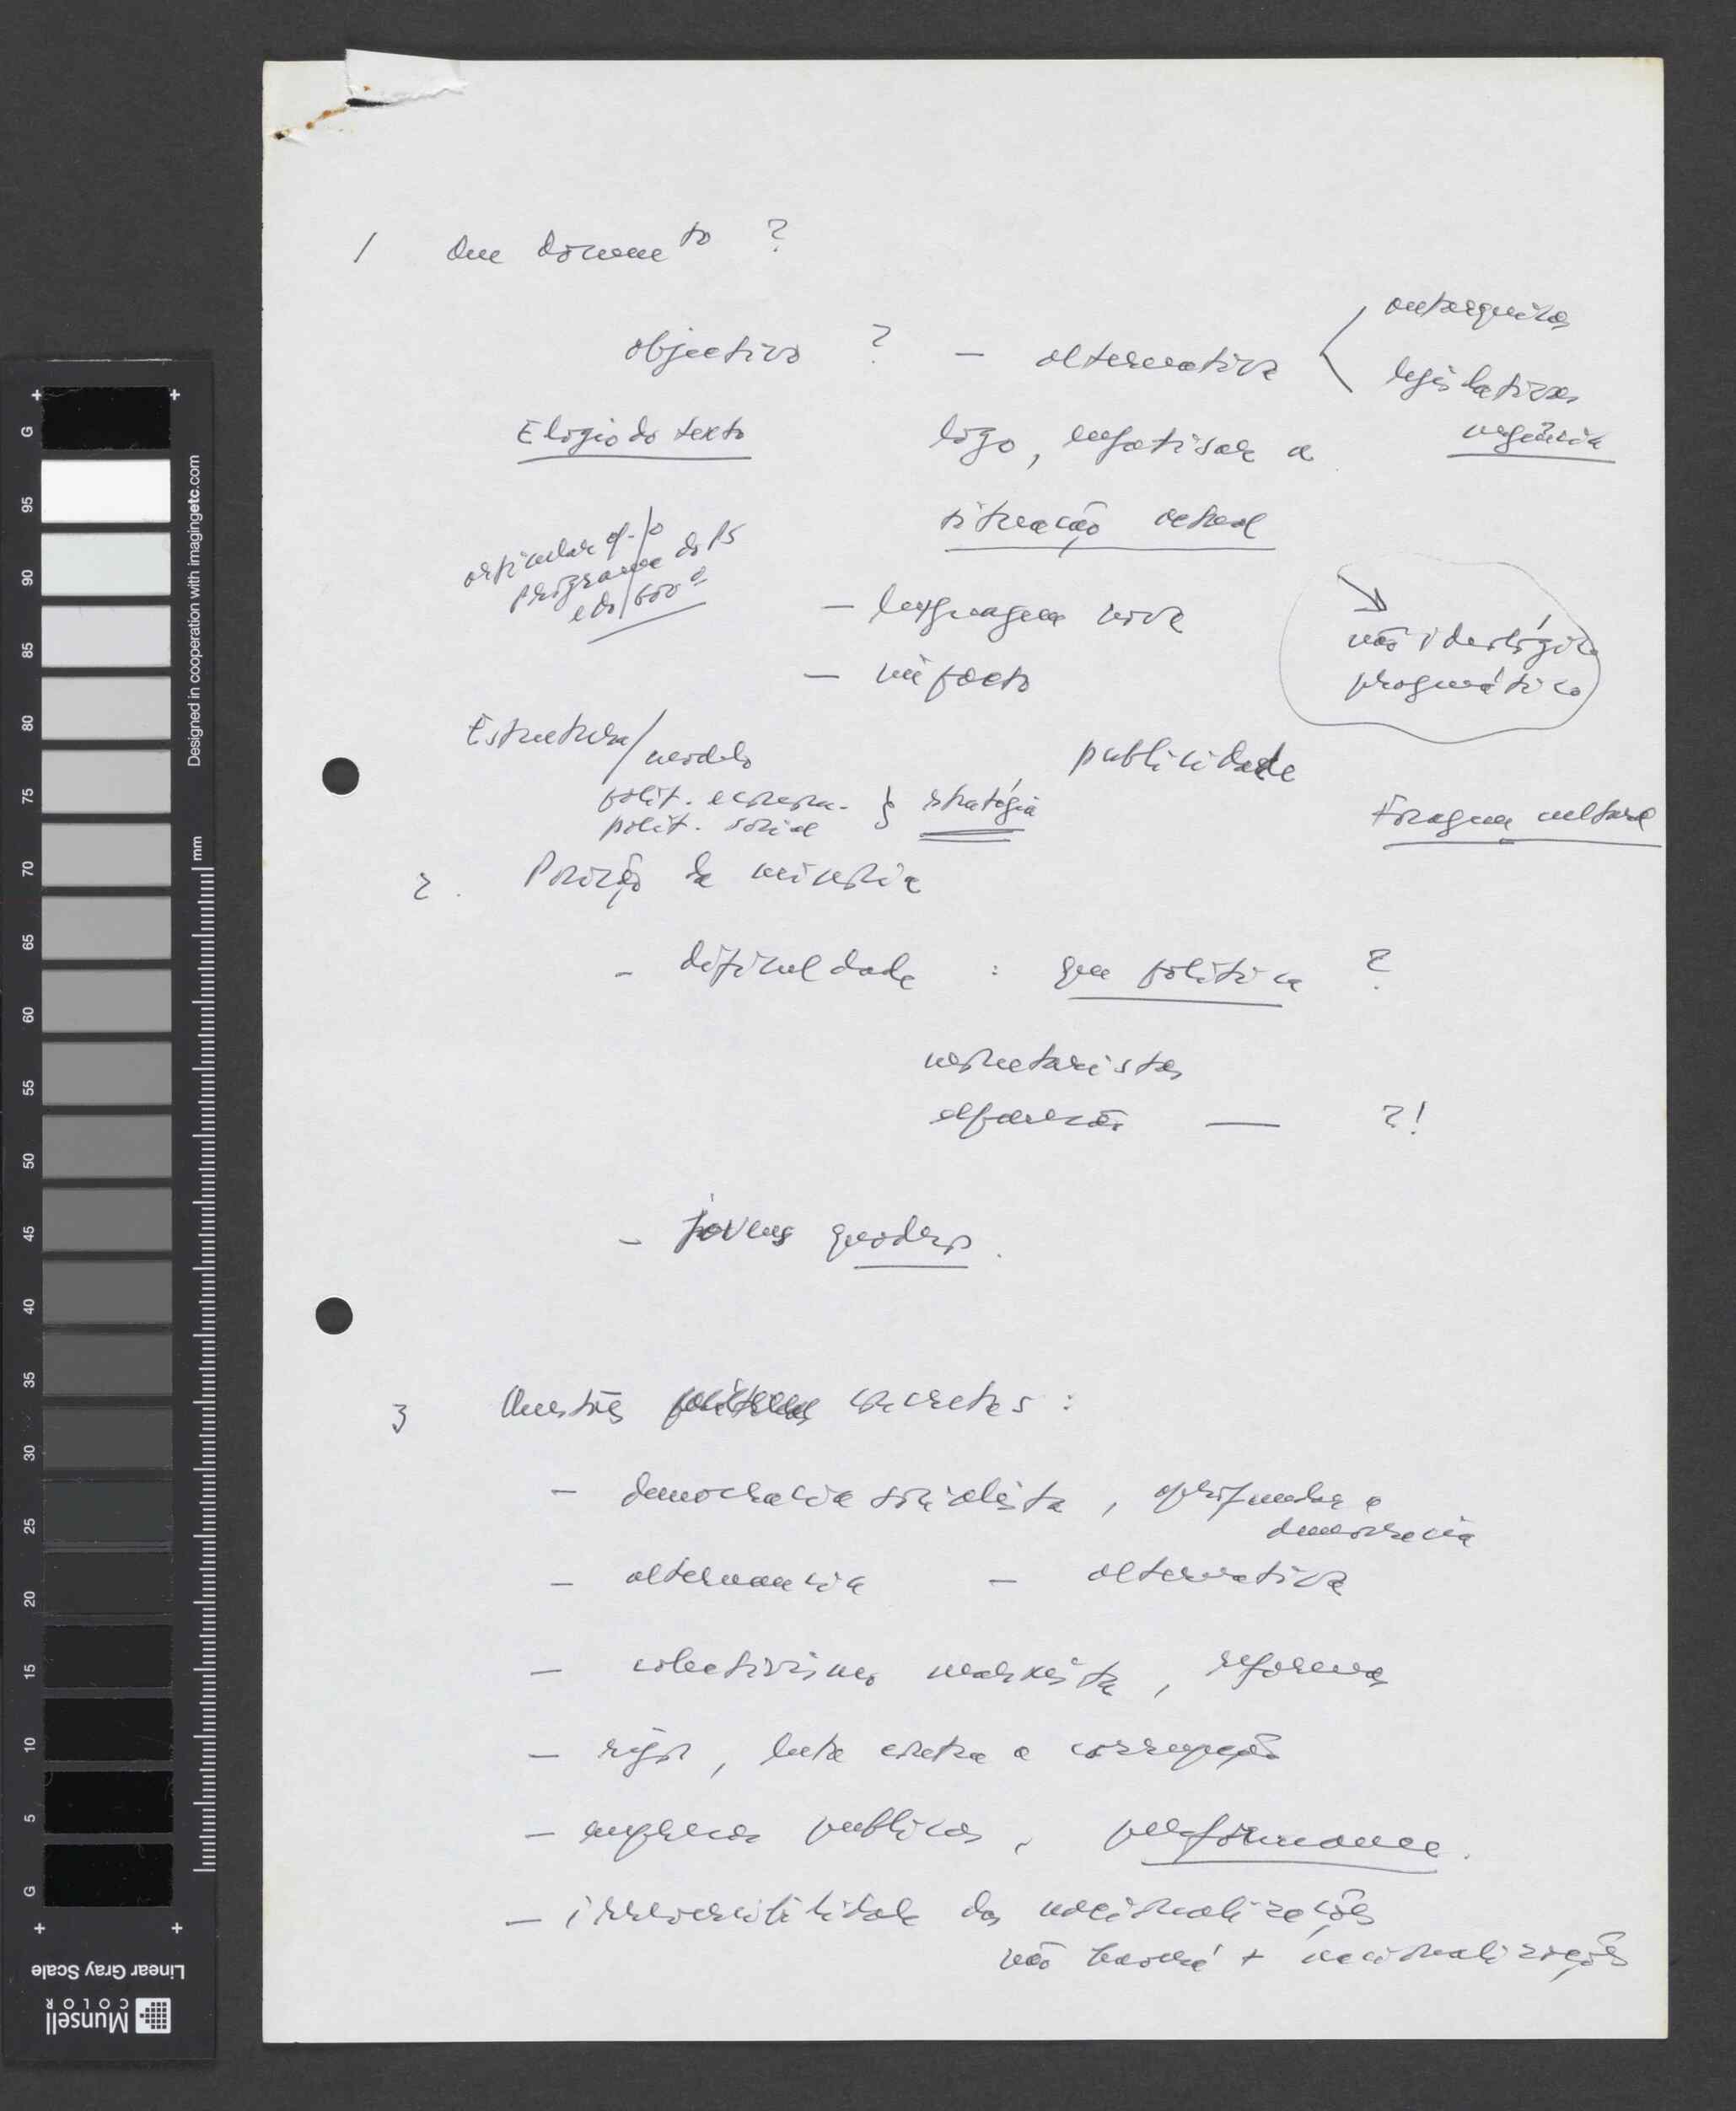 1 Que documento ?
objectivo ? — alternativa
autarquias
legislativas
Elogio do texto
logo, enfatisar a
urgência
situação actual
articular c/ o
programa do PS
e do / 600 o
— linguagem nova
— impacto
não ideológico
pragmático
Estrutura / modelo
polit. econom.
polit. social } estratégia
publicidade
Fóragem cultural
2. Posição da minoria
- dificuldade : que política ?
monetaristas
expansão — ?!
- jovens quadros.
3 Questões concretas :
- democracia socialista, aprofundar a
democracia
- alternancia — alternativa
- colectivismo marxista, reforma
- rigor, luta contra a corrupção
- empresas publicas, performance.
- irreversibilidade das nacionalizações
não haverá + nacionalizações
Designed in cooperation with imagingetc.com
mm
G 95 90 85 80 75 70 65 60 55 50 45 40 35 30 25 20 15 10 5 G
Linear Gray Scale
Munsell
COLOR